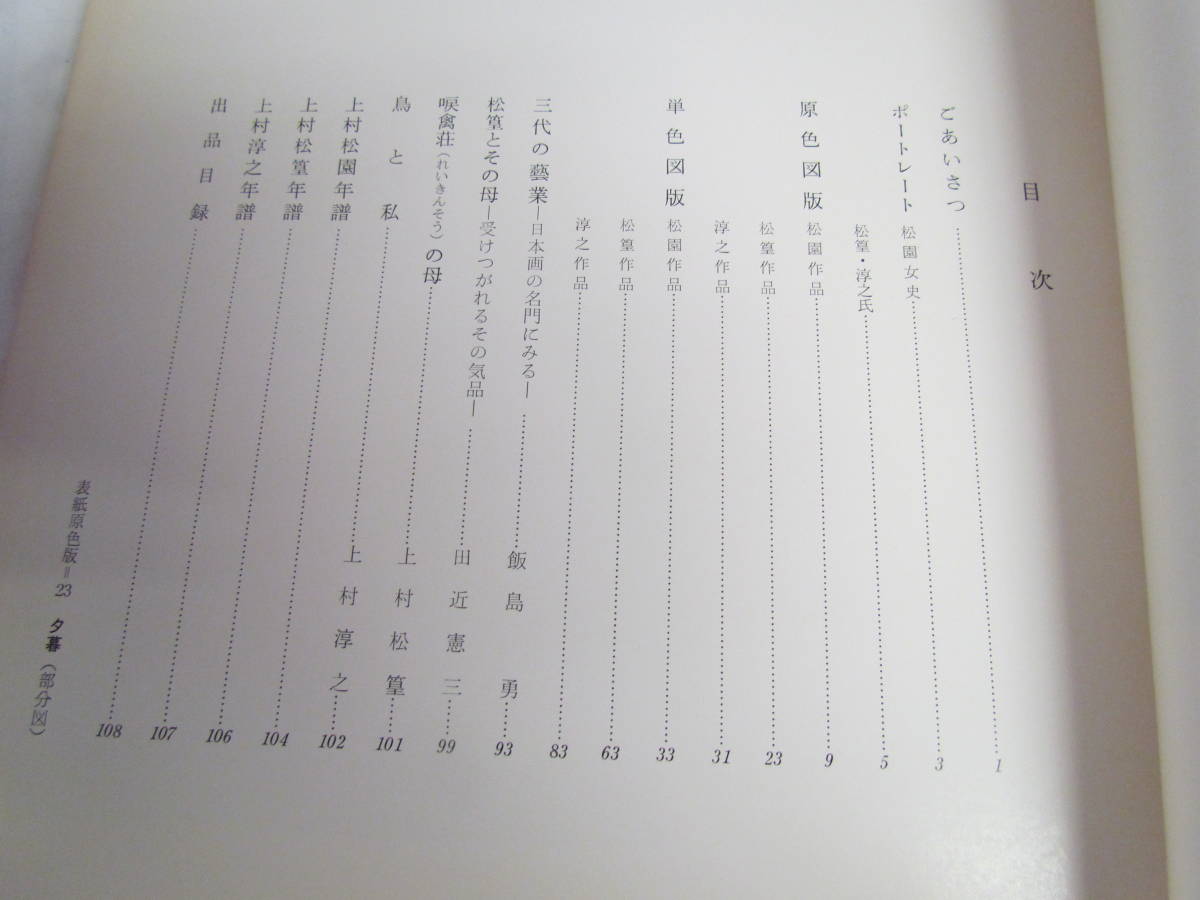 目次
ごあいさつ……1
ポートレート 松園女史……3
松篁・淳之氏……5
原色図版 松園作品……9
松篁作品……23
淳之作品……31
単色図版 松園作品……33
松篁作品……63
淳之作品……83
三代の藝業―日本画の名門にみる―……飯島勇……93
松篁とその母―受けつがれるその気品―……田近憲三……99
唳禽荘(れいきんそう)の母……上村松篁……101
鳥と私……上村淳之……102
上村松園年譜……104
上村松篁年譜……106
上村淳之年譜……107
出品目録……108
表紙原色版=23 夕暮(部分図)